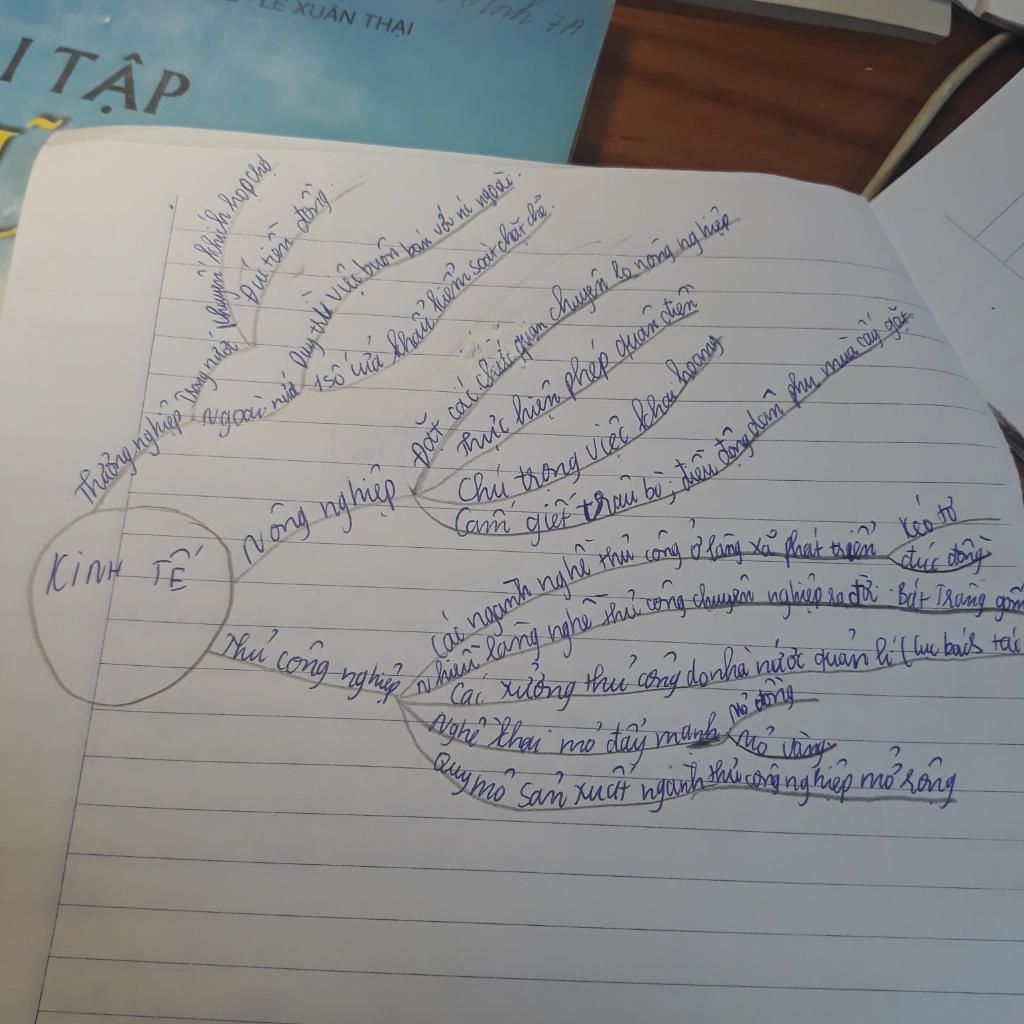 LÊ XUÂN THẠI
7A
I TẬP
KINH TẾ
Thương nghiệp
Trong nước
khuyến khích họp chợ
Đúc tiền đồng.
Ngoài nước
Duy trì việc buôn bán với nc ngoài.
1 số cửa khẩu kiểm soát chặt chẽ.
Nông nghiệp
Đặt các chức quan chuyên lo nông nghiệp
Thực hiện phép quân điền
Chú trọng việc khai hoang
Cấm giết trâu bò; điều động dân phu mùa cấy gặt
Thủ công nghiệp
Các ngành nghề thủ công ở làng xã phát triển
kéo tơ
đúc đồng
Nhiều làng nghề thủ công chuyên nghiệp ra đời. Bát Tràng gốm
Các xưởng thủ công do nhà nước quản lí (Cục bách tác
Nghề khai mỏ đẩy mạnh
Mỏ đồng
Mỏ vàng
Quy mô sản xuất ngành thủ công nghiệp mở rộng